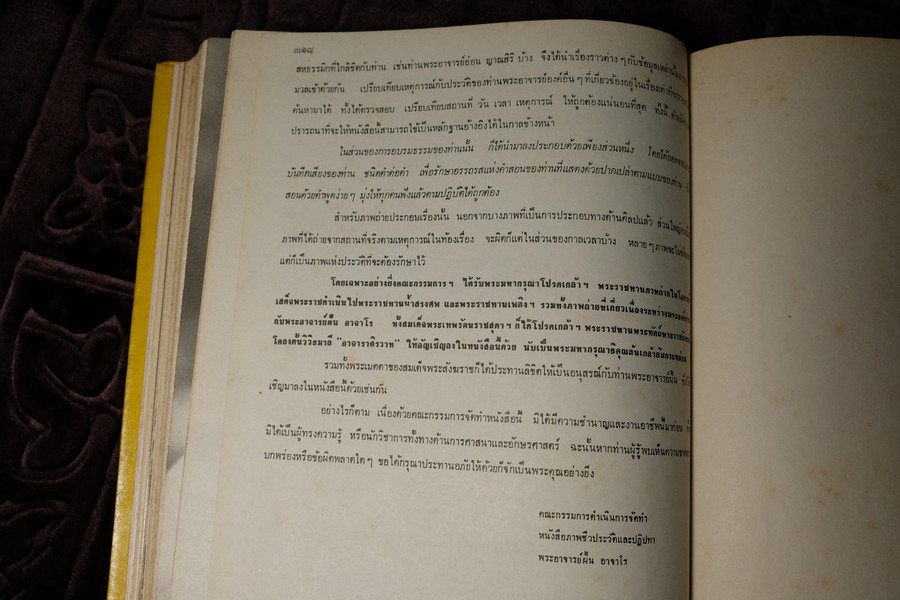 ๓๑๘
สหธรรมิกที่ใกล้ชิดกับท่าน เช่นท่านพระอาจารย์อ่อน ญาณสิริ บ้าง จึงได้นำเรื่องราวต่าง ๆ กับข้อมูลเหล่านั้น
มวลเข้าด้วยกัน เปรียบเทียบเหตุการณ์กับประวัติของท่านพระอาจารย์องค์อื่น ๆ ที่เกี่ยวข้องอยู่ในเรื่องเท่าที่จะ
ค้นหามาได้ ทั้งได้ตรวจสอบ เปรียบเทียบสถานที่ วัน เวลา เหตุการณ์ ให้ถูกต้องแน่นอนที่สุด ทั้งนี้
ปรารถนาที่จะให้หนังสือนี้สามารถใช้เป็นหลักฐานอ้างอิงได้ในกาลข้างหน้า
ในส่วนของการอบรมธรรมของท่านนั้น ก็ได้นำมาลงประกอบด้วยเพียงส่วนหนึ่ง โดยได้ถอด
บันทึกเสียงของท่าน ชนิดคำต่อคำ เพื่อรักษาอรรถรสแห่งคำสอนของท่านที่แสดงด้วยปากเปล่าตามแบบของท่าน
สอนด้วยคำพูดง่าย ๆ มุ่งให้ทุกคนฟังแล้วตามปฏิบัติได้ถูกต้อง
สำหรับภาพถ่ายประกอบเรื่องนั้น นอกจากบางภาพที่เป็นการประกอบทางด้านศิลปแล้ว ส่วนใหญ่
ภาพที่ได้ถ่ายจากสถานที่จริงตามเหตุการณ์ในท้องเรื่อง จะผิดก็แต่ในส่วนของกาลเวลาบ้าง หลาย ๆ ภาพจะไม่
แต่ก็เป็นภาพแห่งประวัติที่จะต้องรักษาไว้
โดยเฉพาะอย่างยิ่งคณะกรรมการ ฯ ได้รับพระมหากรุณาโปรดเกล้า ฯ พระราชทานภาพถ่ายใน
เสด็จพระราชดำเนินไปพระราชทานน้ำสรงศพ และพระราชทานเพลิง ฯ รวมทั้งภาพถ่ายที่เกี่ยวเนื่องระหว่าง
กับพระอาจารย์ฝั้น อาจาโร ทั้งสมเด็จพระเทพรัตนราชสุดา ฯ ก็ได้โปรดเกล้า ฯ พระราชทานพระหัตถ์
โคลงดั้นวิวิธมาลี "อาจาราภิรวาท" ให้อัญเชิญลงในหนังสือนี้ด้วย นับเป็นพระมหากรุณาธิคุณล้นเกล้าล้นกระหม่อม
รวมทั้งพระเมตตาของสมเด็จพระสังฆราชก็ได้ประทานลิขิตให้เป็นอนุสรณ์กับท่านพระอาจารย์ฝั้น
เชิญมาลงในหนังสือนี้ด้วยเช่นกัน
อย่างไรก็ตาม เนื่องด้วยคณะกรรมการจัดทำหนังสือนี้ มิได้มีความชำนาญและงานอาชีพนี้มาก่อน
มิได้เป็นผู้ทรงความรู้ หรือนักวิชาการทั้งทางด้านการศาสนาและอักษรศาสตร์ ฉะนั้นหากท่านผู้รู้พบเห็นความ
บกพร่องหรือข้อผิดพลาดใด ๆ ขอได้กรุณาประทานอภัยให้ด้วยก็จักเป็นพระคุณอย่างยิ่ง
คณะกรรมการดำเนินการจัดทำ
หนังสือภาพชีวประวัติและปฏิปทา
พระอาจารย์ฝั้น อาจาโร